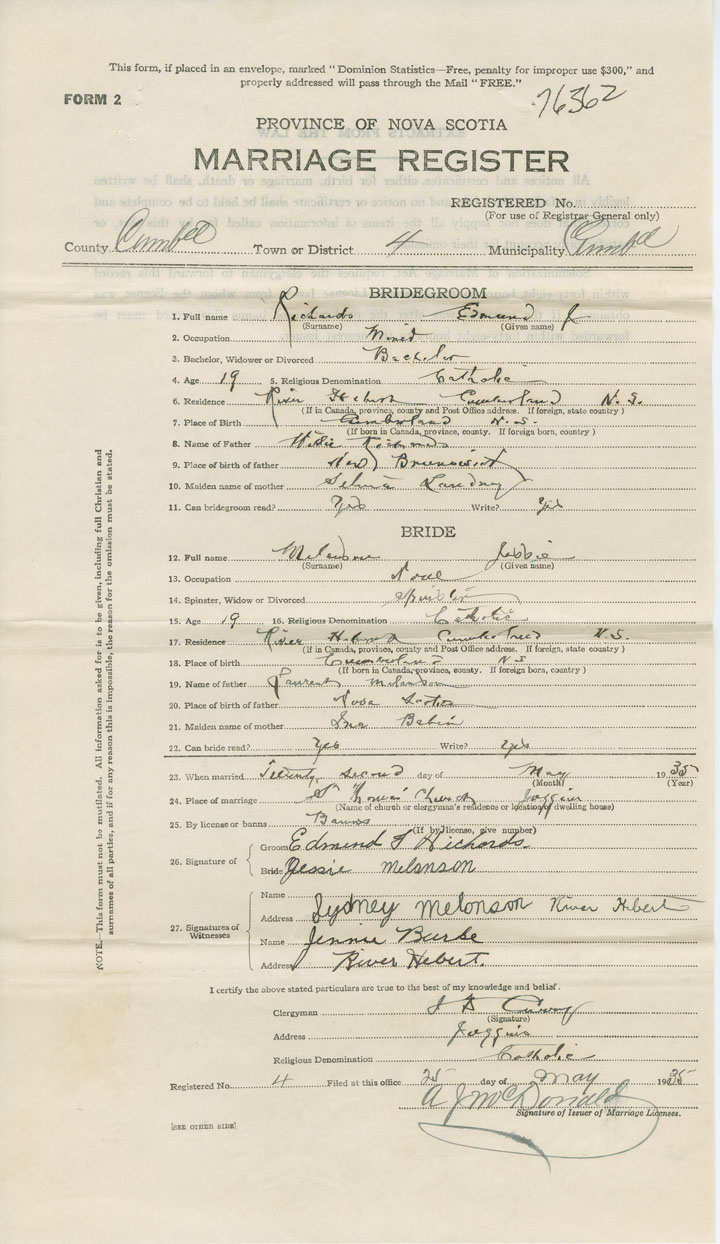 This form, if placed in an envelope, marked "Dominion Statistics—Free, penalty for improper use $300," and
properly addressed will pass through the Mail "FREE."
FORM 2
76362
PROVINCE OF NOVA SCOTIA
MARRIAGE REGISTER
REGISTERED No.
(For use of Registrar General only)
County Town or District 4 Municipality
BRIDEGROOM
1. Full name Richards Edmund J
(Surname) (Given name)
2. Occupation Miner
3. Bachelor, Widower or Divorced Bachelor
4. Age 19 5. Religious Denomination Catholic
6. Residence River Hebert Cumberland N. S.
(If in Canada, province, county and Post Office address. If foreign, state country)
7. Place of Birth Cumberland N. S.
(If born in Canada, province, county. If foreign born, country)
8. Name of Father Richards
9. Place of birth of father New Brunswick
10. Maiden name of mother Landry
11. Can bridegroom read? Yes Write? Yes
BRIDE
12. Full name Melanson
(Surname) (Given name)
13. Occupation None
14. Spinster, Widow or Divorced Spinster
15. Age 19 16. Religious Denomination Catholic
17. Residence River Hebert Cumberland N. S.
(If in Canada, province, county and Post Office address. If foreign, state country)
18. Place of birth Cumberland N S
(If born in Canada, province, county. If foreign born, country)
19. Name of father Laurent Melanson
20. Place of birth of father Nova Scotia
21. Maiden name of mother Babin
22. Can bride read? Yes Write? Yes
23. When married Twenty second day of May 1935
(Month) (Year)
24. Place of marriage St Church Joggins
(Name of church or clergyman's residence or location of dwelling house)
25. By license or banns Banns
(If by license, give number)
26. Signature of
Groom Edmund J Richards
Bride Jessie Melanson
27. Signatures of Witnesses
Name
Address Sydney Melonson River Hebert
Name Jennie Burke
Address River Hebert.
I certify the above stated particulars are true to the best of my knowledge and belief.
Clergyman
(Signature)
Address Joggins
Religious Denomination Catholic
Registered No. 4 Filed at this office 25 day of May 1935
A J McDonald
Signature of Issuer of Marriage Licenses.
[SEE OTHER SIDE]
NOTE.—This form must not be mutilated. All information asked for is to be given, including full Christian and
surnames of all parties, and if for any reason this is impossible, the reason for the omission must be stated.